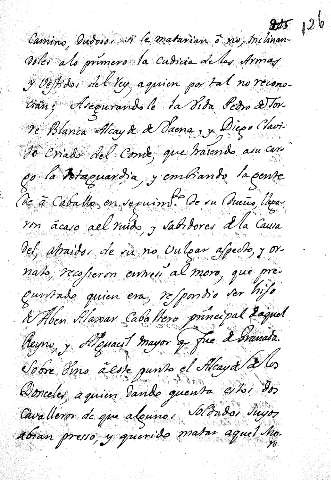 126
Camino, dudosos si le matarian ô no, inclinan-
doles alo primero la Cudicia de las Armas
y Vestidos del Rey, aquien por tal no recono-
cian; Asegurandole la Vida Pedro de Tor-
re Blanca Alcayde de Baena, y Diego Clavi-
jo Criado del Conde, que trayendo asu car-
go la Retaguardia, y embiando la gente
de â Caballo en seguim.to de su Dueño, llega-
ron âcaso al ruido, y sabidores de la Causa
del, atraidos de su no Vulgar aspecto, y or-
nato, recogieron entre si al moro, que pre-
guntado quien era, respondio ser hijo
de Aben Alaxar Caballero principal de aquel
Reyno, y Alguacil mayor q fue de Granada.
Sobre Vino â este punto el Alcayde de los
Donceles, aquien dando quenta estos dos
Cavalleros de que algunos Soldados suyos
abian presso, y querido matar aquel Mo-
ro